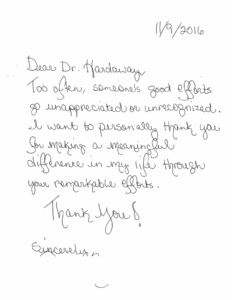 11/9/2016
Dear Dr. Hardaway
Too often, someone's good efforts
go unappreciated or unrecognized.
I want to personally thank you
for making a meaningful
difference in my life through
your remarkable efforts.
Thank You!
Sincerely,